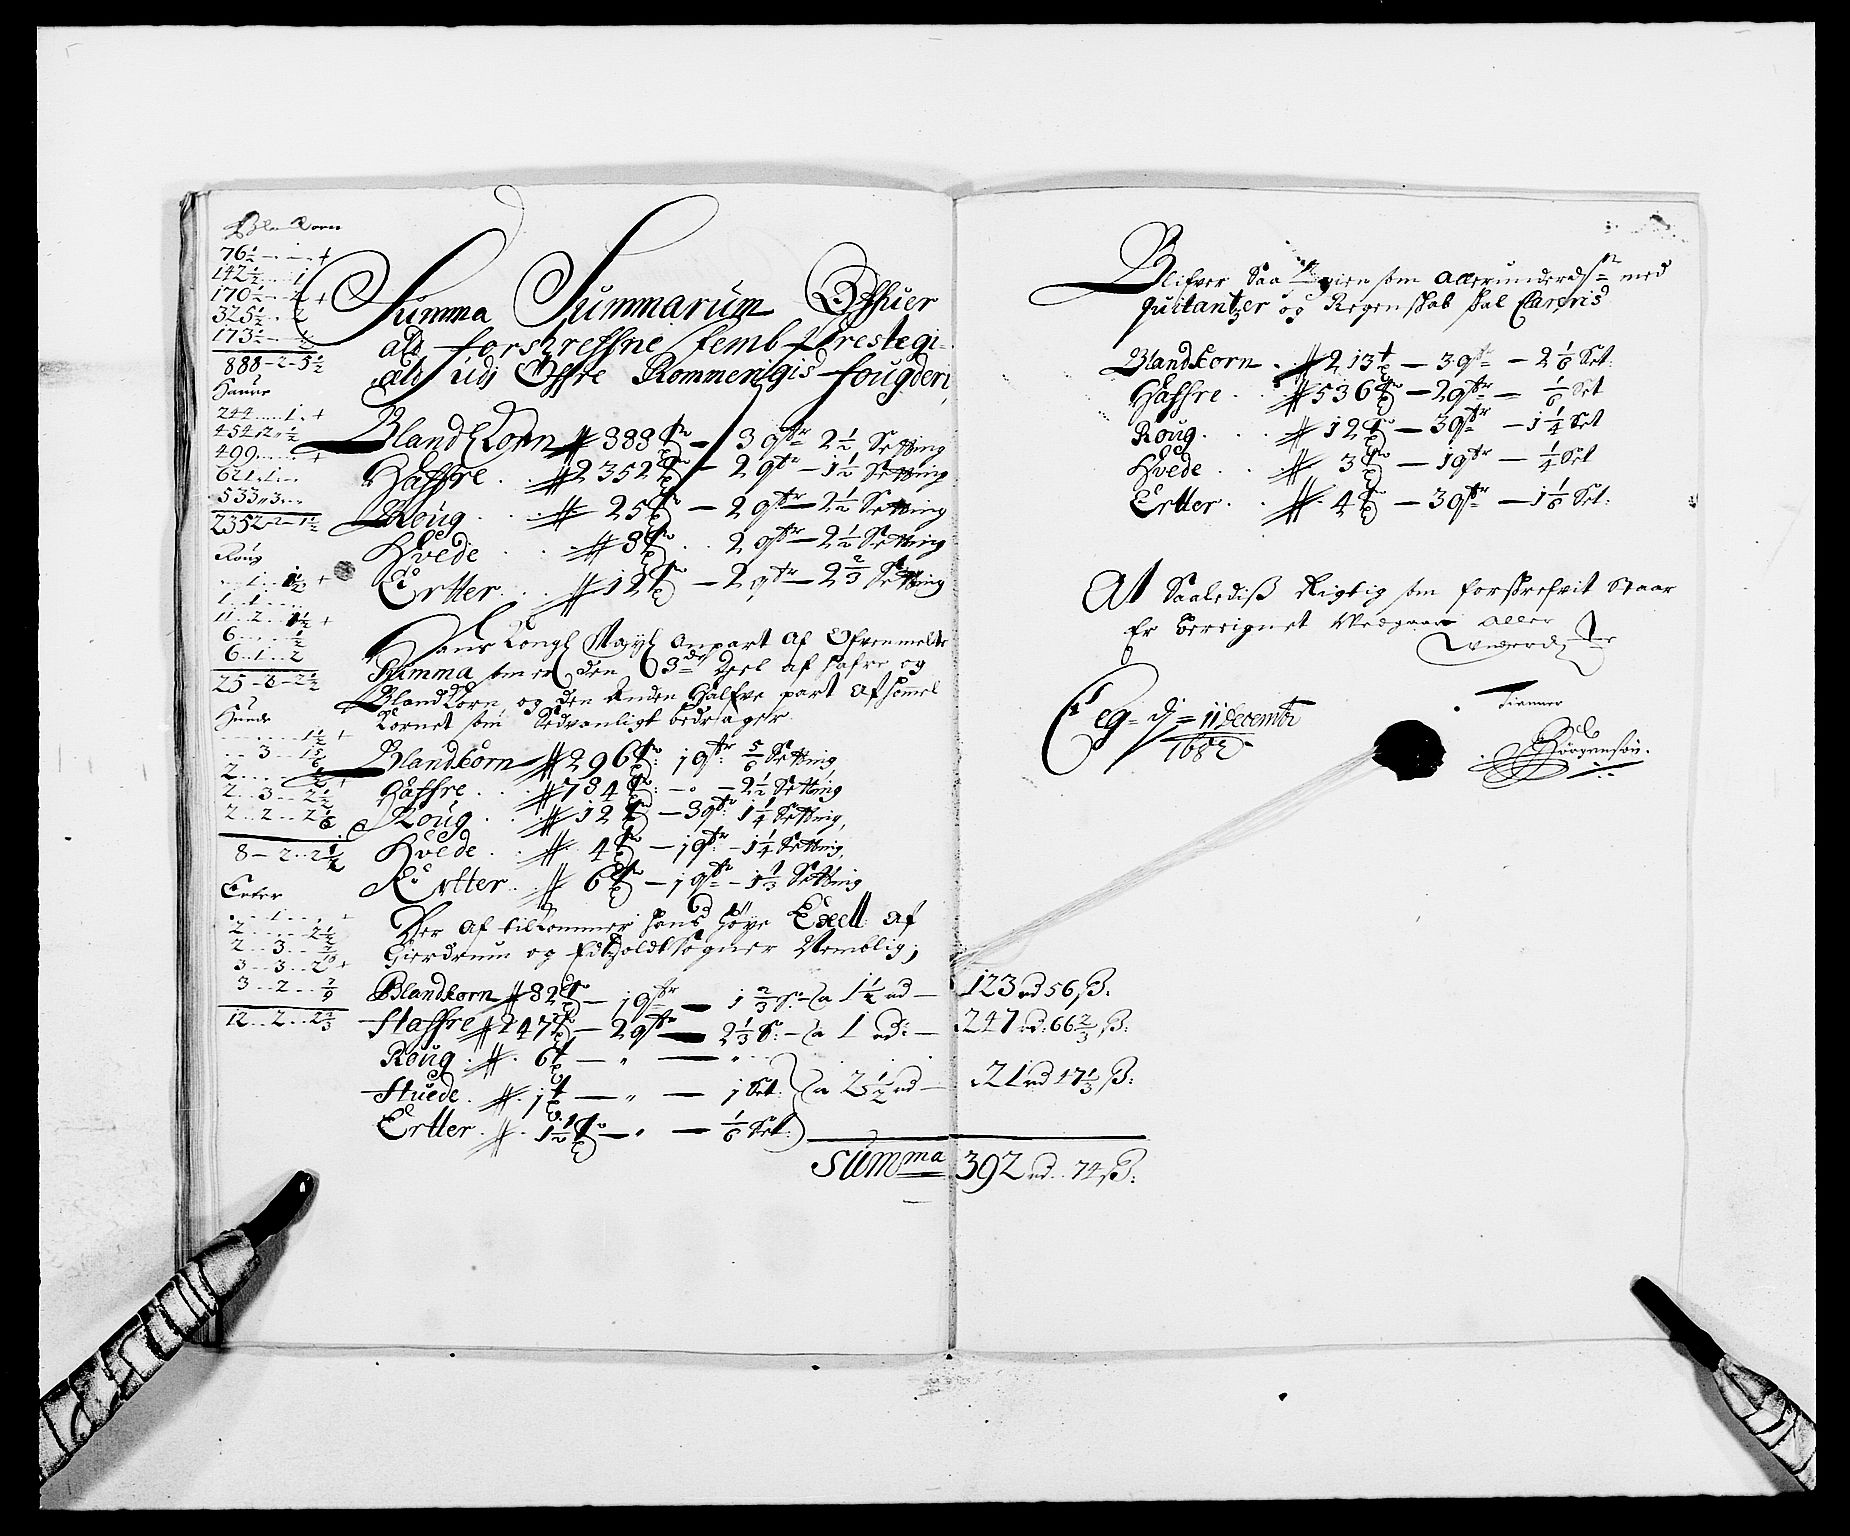 Bland Korn
76½ — . — . +
142½ .... 1
170 — .. 2 +
325½ .. 2
173½ —
888 - 2 - 5½
Haure
244 .... 1 . +
454 .. 2 .. ½
499 ..... +
621 .. 1 ...
533 .. 3 ...
2352 - 2 - 1½
Roug
... 1 .. 1½ +
1 .. 1 ....
11 .. 2 .. 1½ +
6 ..... ½
6 .. 1 .. 2
25 - 2 - 2½
Huede
....... 1½ +
... 3 ... 1⅚
2 ...
2 .. 3 .. 2½
2 .. 2 .. 2⅙
8 — 2 .. 2½
Erter
... 1 ....
2 ..... 2½
2 .. 3 ..
3 .. 3 .. 2 +
3 .. 2 ..
12 .. 2 .. 2⅔
Summa Summarum Offuer
ald forskreffne femb Prestegi-
ald udj Offre Rommerigis fougderi,
Bland Korn # 888 — 3 qtr 2½ Setting
Haffre . # 2352 — 2 qtr — 1½ Setting
Roug . . # 25 — 2 qtr — 2½ Setting
Hvede . . # 8 . . 2 qtr — 2½ Setting
Ertter . . # 12 — 2 qtr — 2⅔ Setting
Hans Kongl Mayt anpart af Ofvenmelte
Summa som er den 3de Deel af Hafre og
Bland Korn, og den Anden Halfve part af
Kornet som Sedvanligt bedrager
Blandkorn # 296 : 1 qtr : ⅚ Setting
Haffre . . # 784 : — „ — 2½ Setting
Roug . . # 12 — 3 qtr 1¼ Setting,
Hvede . . # 4 — 1 qtr — 1¼ Setting,
Ertter . . # 6 — 1 qtr — 1⅓ Setting
Her af tilkommer Hans Høye Excell: af
Gierdrum og Eidtzvoldt Sogner Nemblig;
Blandkorn # 82 — 1 qtr — 1⅔ S: — a 1½ rd — 123 rd 56 ß:
Haffre # 247 — 2 qtr — 2⅓ S: — a 1 rd: — 247 rd: 66⅔ ß:
Roug . # . 6 — „ — „
Huede . # . 1 — „ — 1 Set: a 2½ rd — 21 rd 17⅓ ß:
Ertter . # . 1½ — „ — ⅙ Set:
Summa 392 rd . 74 ß:
Blifver Saa igien som Allerunderdst med
Quitantzer og Regenskab skal Clareris
Blandkorn . # 213 — 3 qtr — 2⅙ Set:
Haffre . . # 536 — 2 qtr — ⅙ Set
Roug . . . # 12 — 3 qtr — 1¼ Set
Hvede . . # 3 — 1 qtr — ¼ Set
Ertter . . # 4 — 3 qtr — 1⅙ Set:
At Saaledis Rigtig som forskrefvit Staar
Er beregnet Aller
Eeg - dj = 11 Decembr
1682
Tienner
Jörgensön.